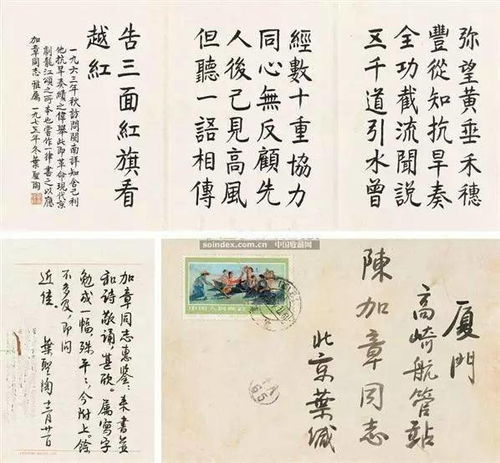 弥望黄垂禾穗
豐從知抗旱奏
全功截流聞說
五千道引水曾
經數十重協力
同心無反顧先
人後己見高風
但聽一語相傳
告三面紅旗看
越紅
一九六三年秋訪問閩南詳知舍己利
他抗旱奏績之偉舉此即革命現代京
劇龍江頌之所本也當作一律書之以應
加章同志雅屬 一九七五年冬葉聖陶
soindex.com.cn
加章同志惠鑒:来書並
和詩敬誦甚欣。屬寫字
勉成一幅殊平平,今附上。餘
不多及,即問
近佳。
葉聖陶
中国人民邮政
厦門
高崎航管站
陳加章同志
北京葉緘